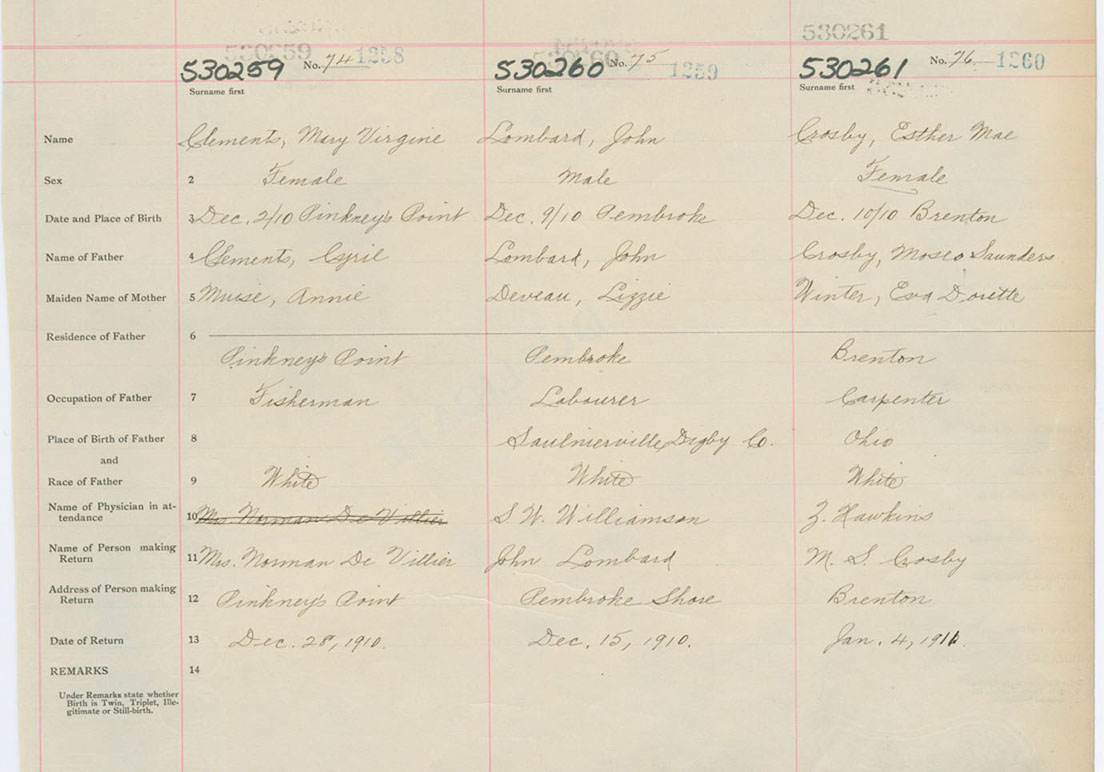 530261
530259 No. 74 1258 530260 No. 75 1259 530261 No. 76 1260
Surname first Surname first Surname first
Name Clements, Mary Virgine Lombard, John Crosby, Esther Mae
Sex 2 Female Male Female
Date and Place of Birth 3 Dec. 2/10 Pinkney's Point Dec. 9/10 Pembroke Dec. 10/10 Brenton
Name of Father 4 Clements, Cyril Lombard, John Crosby, Moses Saunders
Maiden Name of Mother 5 Muise, Annie Deveau, Lizzie Winter, Eva Dorette
Residence of Father 6
Pinkney's Point Pembroke Brenton
Occupation of Father 7 Fisherman Labourer Carpenter
Place of Birth of Father 8 Saulnierville Digby Co. Ohio
and
Race of Father 9 White White White
Name of Physician in at-
tendance 10 Mrs. Norman De Villier S. W. Williamson Z. Hawkins
Name of Person making
Return 11 Mrs. Norman De Villier John Lombard M. S. Crosby
Address of Person making
Return 12 Pinkney's Point Pembroke Shore Brenton
Date of Return 13 Dec. 28, 1910. Dec. 15, 1910. Jan. 4, 1911.
REMARKS 14
Under Remarks state whether
Birth is Twin, Triplet, Ille-
gitimate or Still-birth.